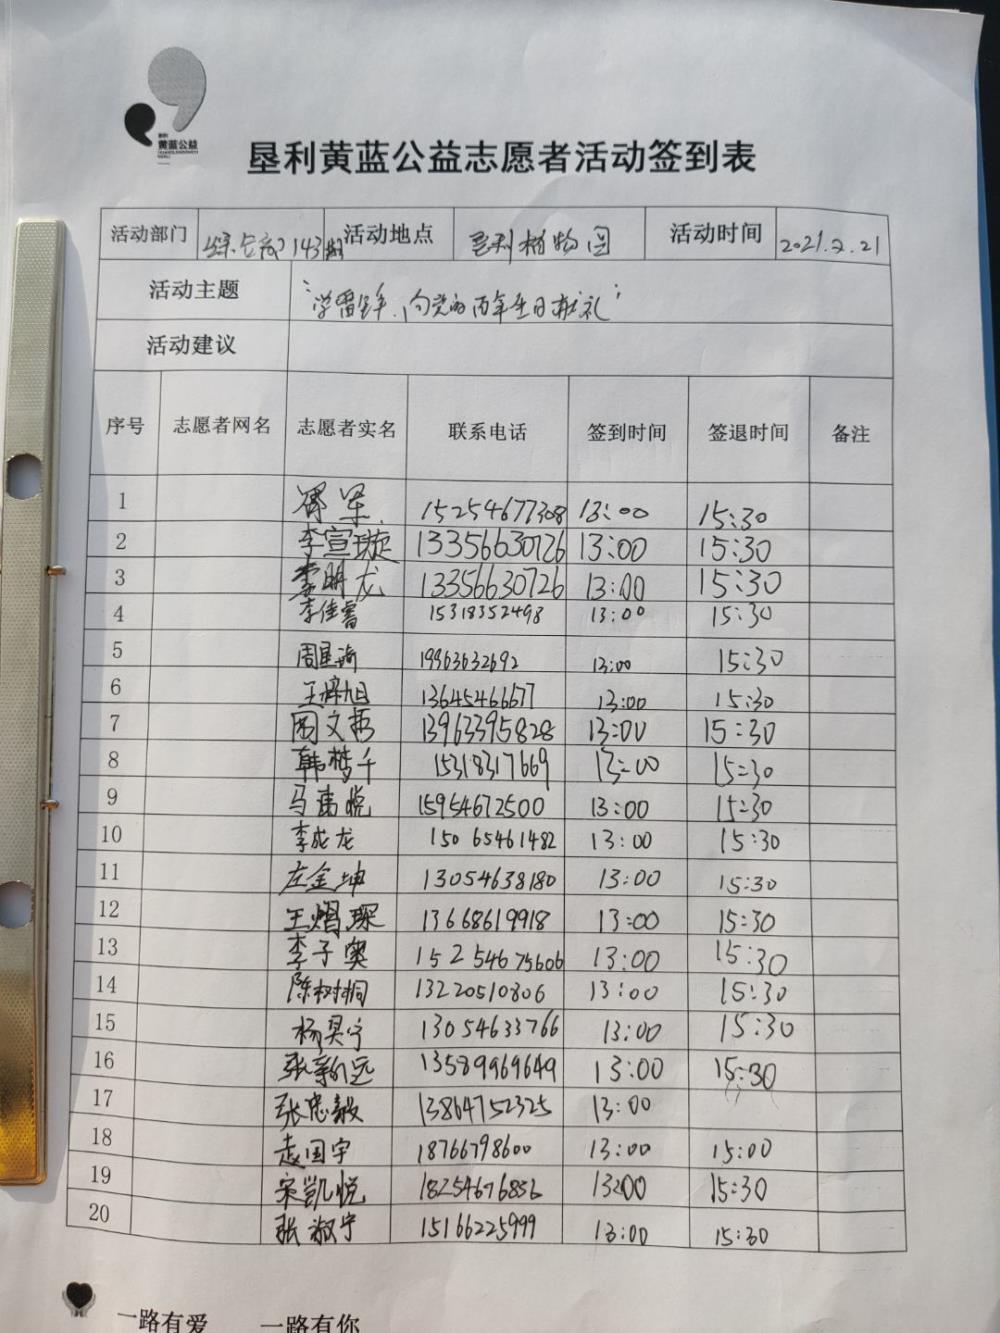 黄蓝公益
垦利黄蓝公益志愿者活动签到表
活动部门 143期 活动地点 垦利植物园 活动时间 2021.2.21
活动主题 “学雷锋、向党的百年生日献礼”
活动建议
序号 志愿者网名 志愿者实名 联系电话 签到时间 签退时间 备注
1 15254677308 13:00 15:30
2 李宣璇 13356630726 13:00 15:30
3 李明龙 13356630726 13:00 15:30
4 李佳睿 15318352498 13:00 15:30
5 19963632692 13:00 15:30
6 王梓旭 13645466677 13:00 15:30
7 周文哲 13963395828 13:00 15:30
8 韩梦千 15318317669 13:00 15:30
9 15954672500 13:00 15:30
10 李成龙 15065461482 13:00 15:30
11 左金坤 13054638180 13:00 15:30
12 王熠琛 13668619918 13:00 15:30
13 李子奥 15254675606 13:00 15:30
14 陈树桐 13220510806 13:00 15:30
15 杨昊宁 13054633766 13:00 15:30
16 13589969649 13:00 15:30
17 张忠毅 13864752325 13:00
18 赵国宇 18766798600 13:00 15:00
19 宋凯悦 18254676856 13:00 15:30
20 张淑宁 15166225999 13:00 15:30
一路有爱 一路有你